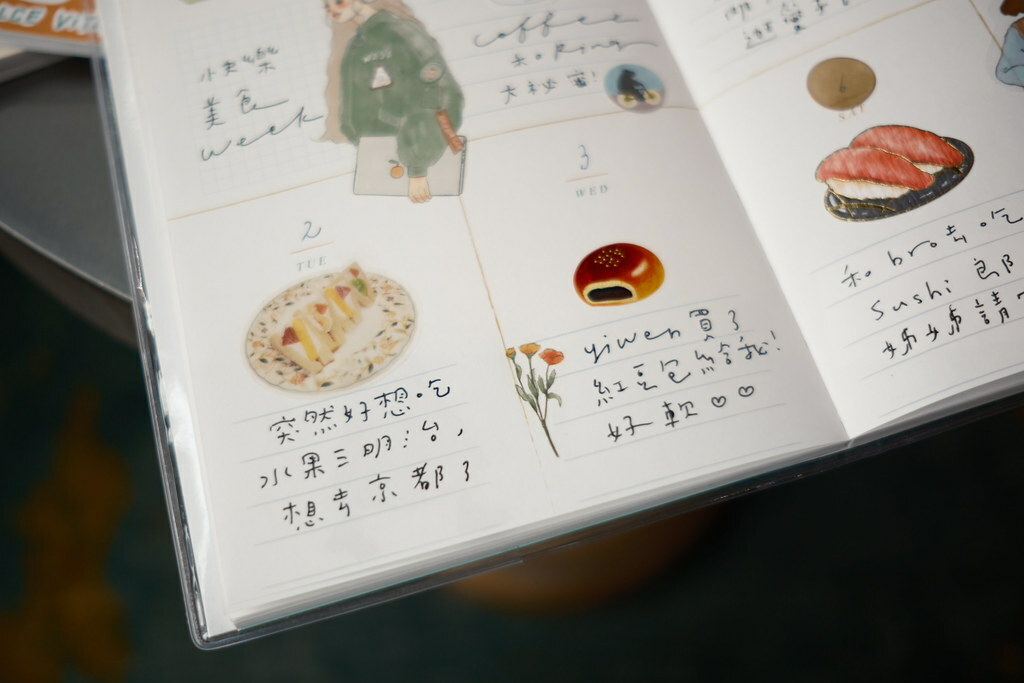 小失樂
美食
week
coffee
大秘密!
2
TUE
突然好想吃
水果三明治,
想去京都了
3
WED
yiwen買了
紅豆包給我!
好軟♡♡
6
SAT
和bro去吃
sushi 郎
姊姊請